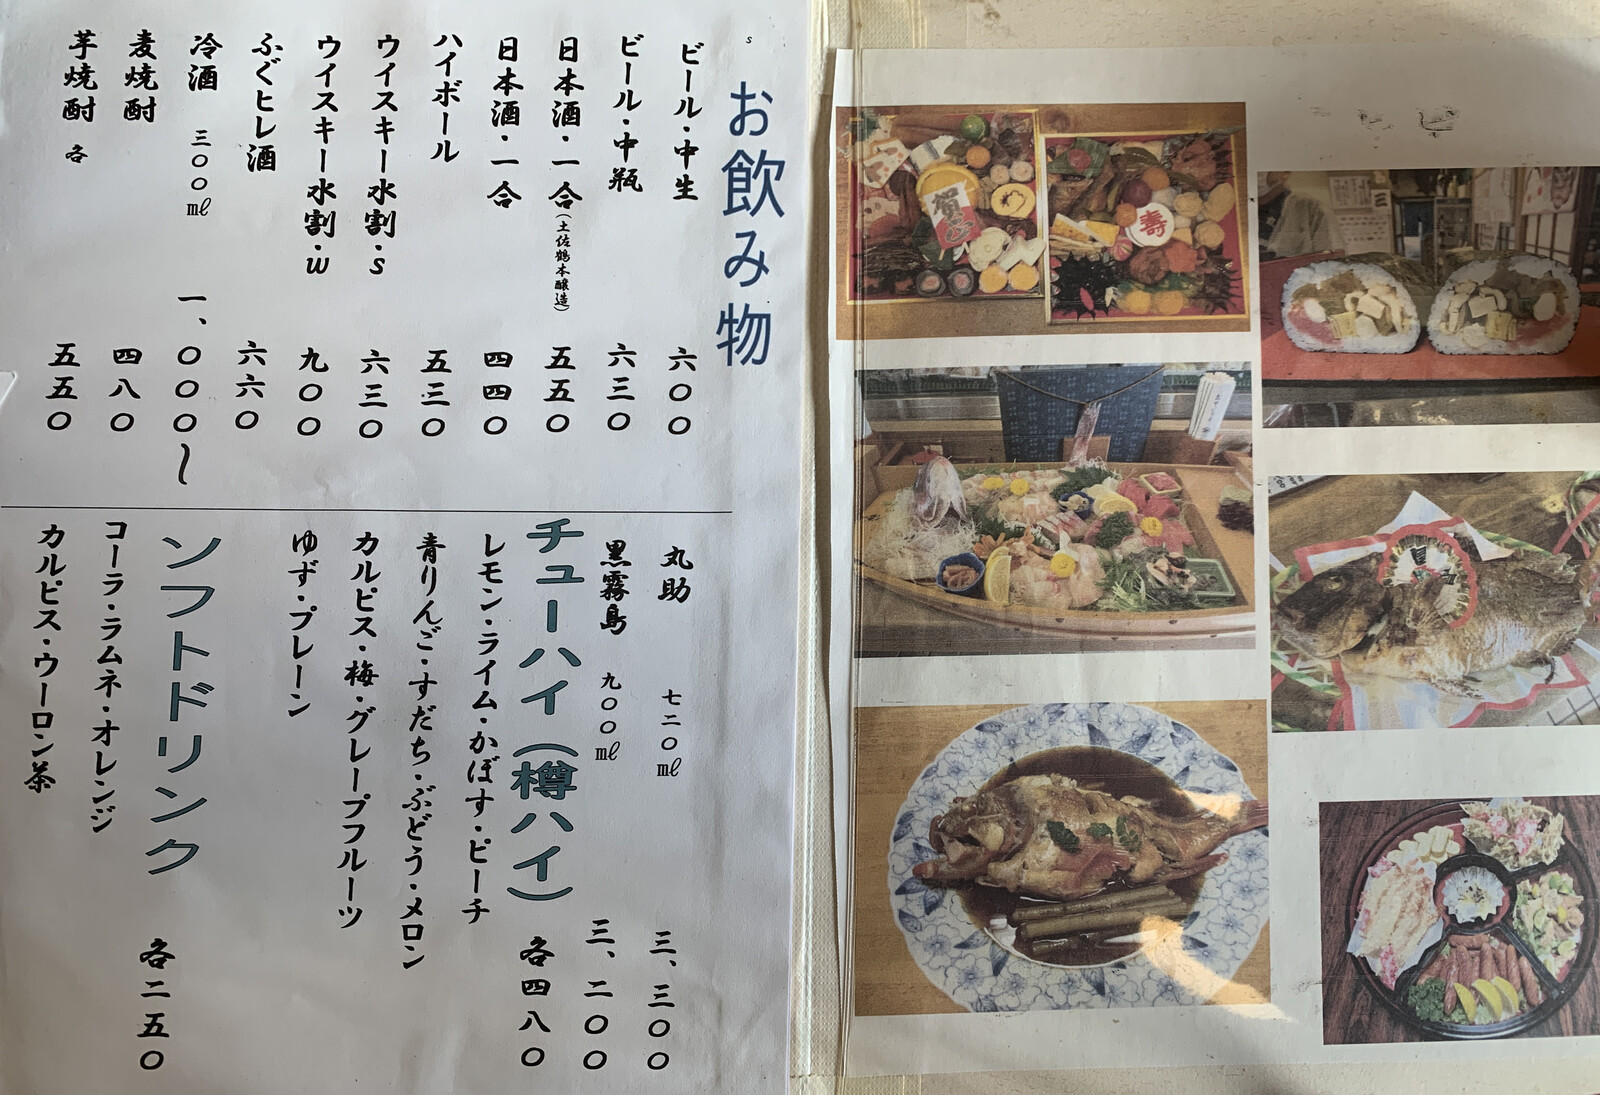 お飲み物
ビール・中生 六〇〇
ビール・中瓶 六三〇
日本酒・一合(土佐鶴本醸造) 五五〇
日本酒・一合 四四〇
ハイボール 五三〇
ウイスキー水割・s 六三〇
ウイスキー水割・w 九〇〇
ふぐヒレ酒 六六〇
冷酒 三〇〇㎖ 一、〇〇〇〜
麦焼酎 四八〇
芋焼酎 各 五五〇
丸助 七二〇㎖ 三、三〇〇
黒霧島 九〇〇㎖ 三、二〇〇
チューハイ(樽ハイ) 各四八〇
レモン・ライム・かぼす・ピーチ
青りんご・すだち・ぶどう・メロン
カルピス・梅・グレープフルーツ
ゆず・プレーン
ソフトドリンク 各二五〇
コーラ・ラムネ・オレンジ
カルピス・ウーロン茶
s
賀
寿